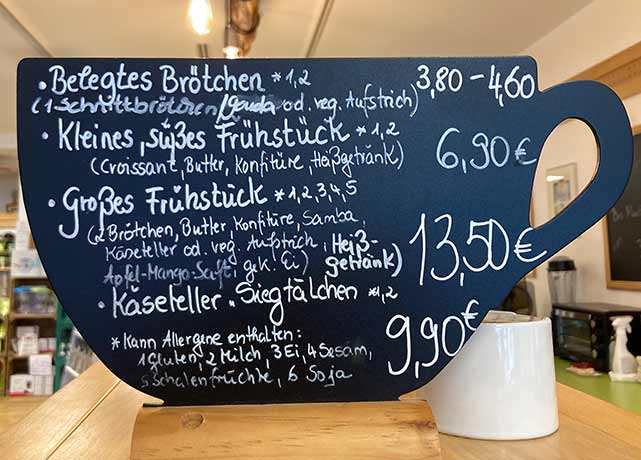 • Belegtes Brötchen *1,2 3,80 - 4,60
(1 Schnittbrötchen, Gouda od. veg. Aufstrich)
• Kleines, süßes Frühstück *1,2 6,90 €
(Croissant, Butler, Konfitüre, Heißgetränk)
• Großes Frühstück *1,2,3,4,5 13,50 €
(2 Brötchen, Butter, Konfitüre, Samba,
Käseteller od. veg. Aufstrich, Heiß-
Apfel-Mango-Saft, gek. Ei) getränk)
• Käseteller "Siegtälchen *1,2 9,90 €
*Kann Allergene enthalten:
1 Gluten, 2 Milch, 3 Ei, 4 Sesam,
5 Schalenfrüchte, 6 Soja